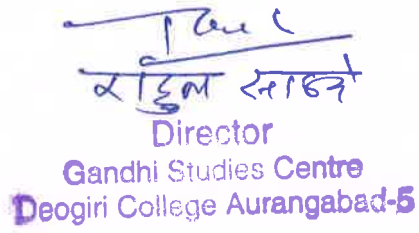 राहुल साळवे
Director
Gandhi Studies Centre
Deogiri College Aurangabad-5